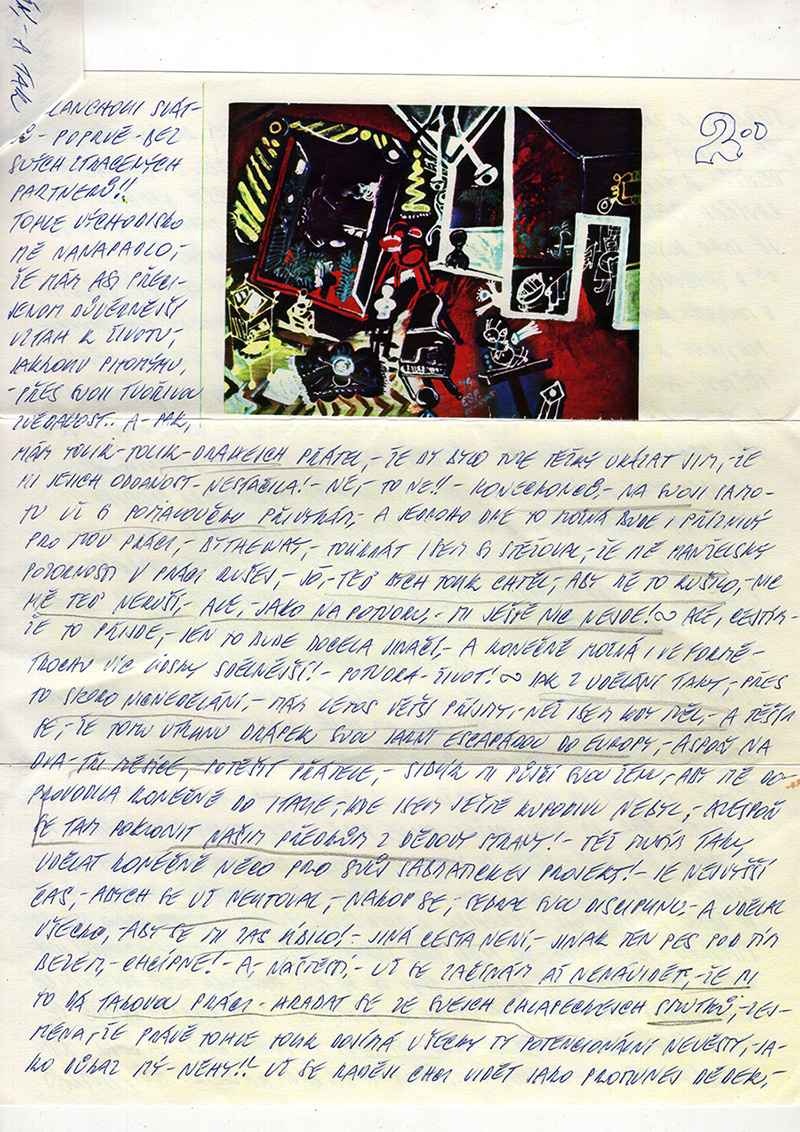 N - A TAK
LANCHOLII SVÁT-
- POPRVÉ - BEZ
SVÝCH ZTRACENÝCH
PARTNERŮ!!
TOHLE VÝCHODISKO
MĚ NANAPADLO,-
ŽE MÁM ASI PŘECI-
JENOM DŮVĚRNĚJŠÍ
VZTAH K ŽIVOTU,
JAKKOLI PITOMÝMU,
- PŘES SVOJI TVOŘIVOU
ZVĚDAVOST.. A - PAK,
200
MÁM TOLIK - TOLIK - DRAHEJCH PŘÁTEL,- ŽE BY BYLO MI TĚŽKÝ UKÁZAT JIM,- ŽE
MI JEJICH ODDANOST - NESTAČILA! - NE,- TO NE!! - KONECKONCŮ,- NA SVOJI SAMO-
TU UŽ SI POMALOUČKU PŘIVYKÁM,- A JEDNOHO DNE TO MOŽNÁ BUDE I PŘÍZNIVÝ
PRO MOU PRÁCI,- BYTHEWAY,- TOLIKRÁT JSEM SI STĚŽOVAL,- ŽE MĚ MANŽELSKÝ
POZORNOSTI V PRÁCI RUŠEJ,- JÓ,- TEĎ BYCH TOLIK CHTĚL,- ABY MĚ TO RUŠILO,- NIC
MĚ TEĎ NERUŠÍ,- ALE,- JAKO NAPOTVORU,- MI JEŠTĚ NIC NEJDE! ~ ALE, CEJTÍM-
ŽE TO PŘIJDE,- JEN TO BUDE DOCELA JINAČÍ,- A KONEČNĚ MOŽNÁ I VE FORMĚ -
TROCHU VÍC LIDSKY SDĚLNĚJŠÍ! - POTVORA - ŽIVOT! ~ JAK Z UDĚLÁNÍ TAKY,- PŘES
TO SKORO NICNEDĚLÁNÍ,- MÁM LETOS VĚTŠÍ PŘÍJMY,- NEŽ JSEM KDY MĚL,- A TĚŠÍM
SE,- ŽE TOMU UTRHNU DRÁPEK SVOU JARNÍ ESCAPÁDOU DO EUROPY,- ASPOŇ NA
DVA - TŘI MĚSÍCE,- POTĚŠIT PŘÁTELE,- SIDÝK MI PŮJČÍ SVOU ŽENU,- ABY MĚ DO-
PROVODILA KONEČNĚ DO ITALIE,- KDE JSEM JEŠTĚ KUPODIVU NEBYL,- ALESPOŇ
SE TAM POKLONIT NAŠIM PŘEDKŮM Z DĚDOVY STRANY! - TÉŽ MUSÍM TAKY
UDĚLAT KONEČNĚ NĚCO PRO SVŮJ SABBATICKEJ PROJEKT! - JE NEJVYŠŠÍ
ČAS,- ABYCH SE UŽ NELITOVAL,- NAKOP SE,- SEBRAL SVOU DISCIPLINU,- A UDĚLAL
VŠECKO,- ABY SE MI ZAS LÍBILO! - JINÁ CESTA NENÍ,- JINAK TEN PES POD TÍM
BEZEM,- CHCÍPNE! - A, NAŠTĚSTÍ,- UŽ SE ZAČÍNÁM AŽ NENÁVIDĚT,- ŽE MI
TO DÁ TAKOVOU PRÁCI - HRABAT SE ZE SVEJCH CHLAPECKEJCH SMUTKŮ,- ZEJ-
MÉNA,- ŽE PRÁVĚ TOHLE TOLIK DOJÍMÁ VŠECKY TY POTENCIONÁLNÍ NEVĚSTY,- JA-
KO DŮKAZ MÝ - NĚHY!! UŽ SE RADĚJI CHCI VIDĚT JAKO PROTIVNEJ DĚDEK,-